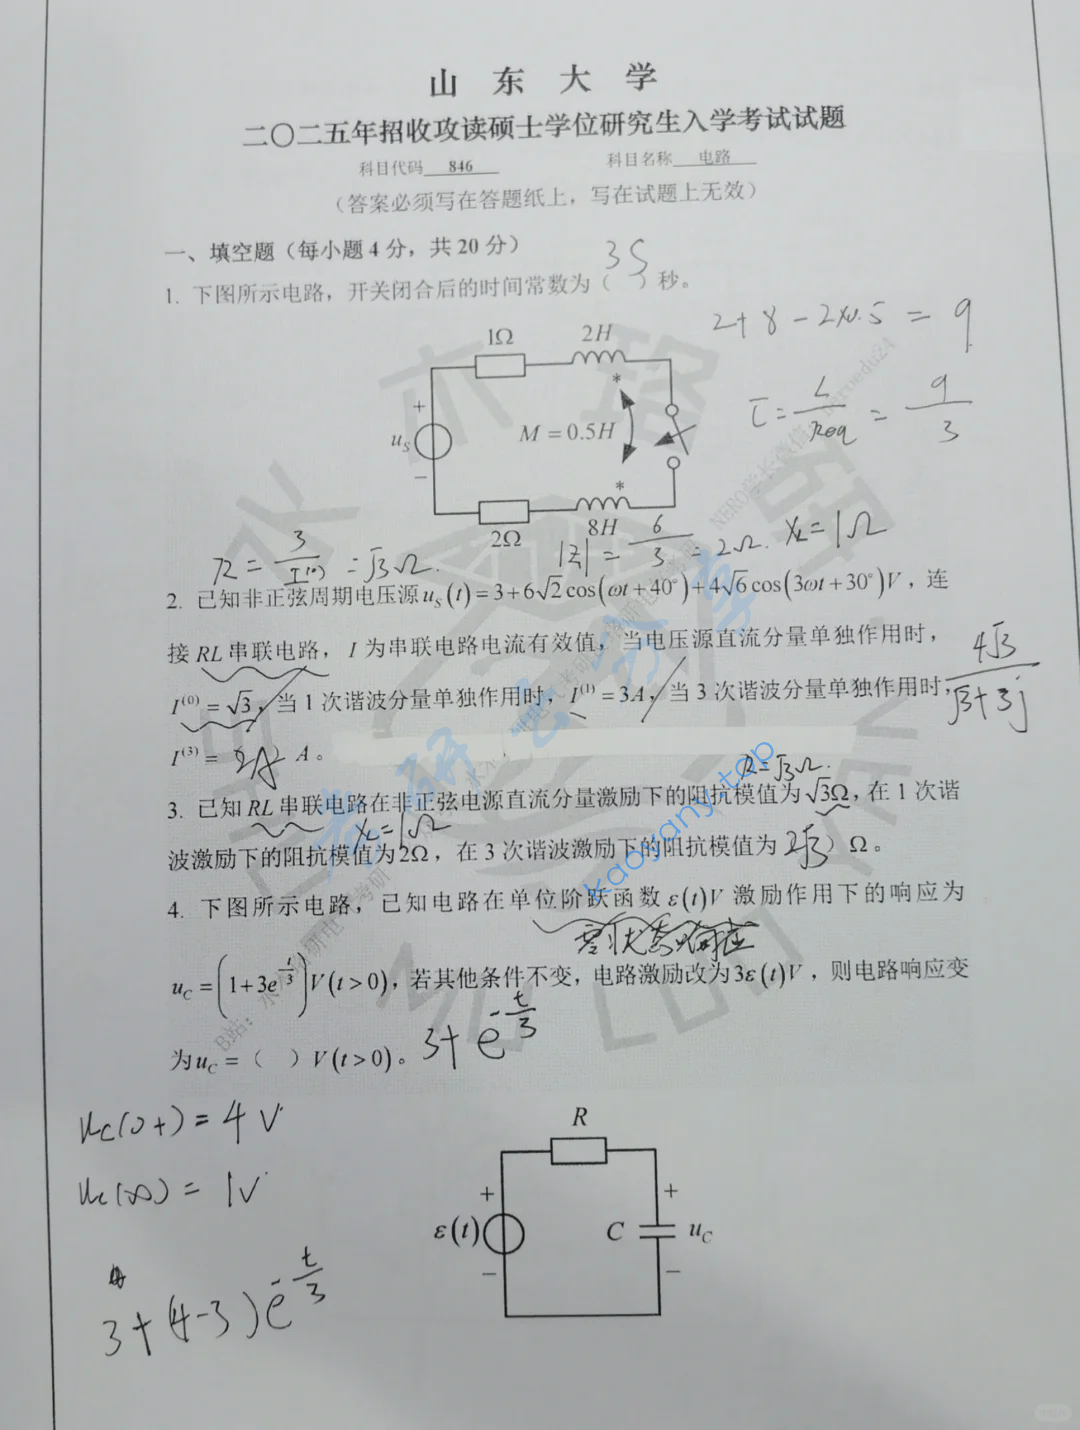 山 东 大 学
二〇二五年招收攻读硕士学位研究生入学考试试题
科目代码 846 科目名称 电路
（答案必须写在答题纸上，写在试题上无效）
一、填空题（每小题 4 分，共 20 分）
3S
1. 下图所示电路，开关闭合后的时间常数为（ ）秒。
2+8-2×0.5=9
1Ω 2H
*
τ=L/Req=9/3
+
u_S M=0.5H
-
*
2Ω 8H
R=3/I(0)=√3Ω. |Z|=6/3=2Ω. XL=1Ω
2. 已知非正弦周期电压源u_S(t)=3+6√2cos(ωt+40°)+4√6cos(3ωt+30°)V，连
接 RL 串联电路，I 为串联电路电流有效值，当电压源直流分量单独作用时，
4√3/√3+3j
I^(0)=√3，当 1 次谐波分量单独作用时，I^(1)=3A，当 3 次谐波分量单独作用时，
I^(3)= 2A A。
R=√3Ω.
3. 已知 RL 串联电路在非正弦电源直流分量激励下的阻抗模值为√3Ω，在 1 次谐
XL=1Ω
波激励下的阻抗模值为2Ω，在 3 次谐波激励下的阻抗模值为 2√3）Ω。
4. 下图所示电路，已知电路在单位阶跃函数 ε(t)V 激励作用下的响应为
零状态响应
u_C=(1+3e^(-t/3))V(t>0)，若其他条件不变，电路激励改为3ε(t)V，则电路响应变
为u_C=（ ）V(t>0)。 3+e^(-t/3)
uc(0+)=4V
uc(∞)=1V
3+(4-3)e^(-t/3)
R
+ +
ε(t) C u_C
- -
kaoyany.top